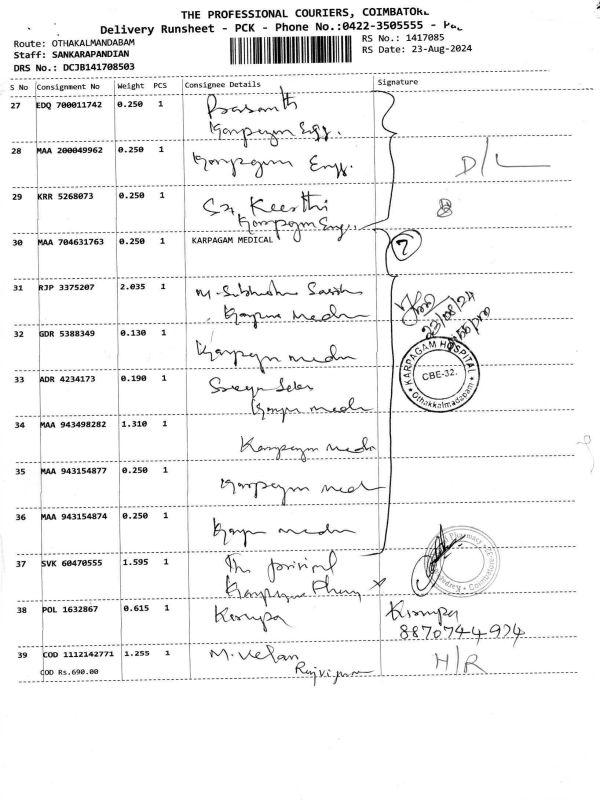 THE PROFESSIONAL COURIERS, COIMBATORE
Delivery Runsheet - PCK - Phone No.:0422-3505555 -
Route: OTHAKALMANDABAM
RS No.: 1417085
Staff: SANKARAPANDIAN
RS Date: 23-Aug-2024
DRS No.: DCJB141708503
S No Consignment No Weight PCS Consignee Details Signature
27 EDQ 700011742 0.250 1 Prasanth
Karpagam Engg.
28 MAA 200049962 0.250 1 Karpagam Engg. D/L
29 KRR 5268073 0.250 1 Keerthi
Karpagam Eng.
30 MAA 704631763 0.250 1 KARPAGAM MEDICAL 7
31 RJP 3375207 2.035 1 M.
23/08/24
32 GDR 5388349 0.130 1 Karpagam medi
KARPAGAM HOSPITAL
CBE-32.
Othakkalmadapam
33 ADR 4234173 0.190 1
34 MAA 943498282 1.310 1 Karpagam medi
35 MAA 943154877 0.250 1 Karpagam med
36 MAA 943154874 0.250 1
37 SVK 60470555 1.595 1 The
Pharmacy
Coimbatore
38 POL 1632867 0.615 1 Kirupa Kirupa
8870744974
39 COD 1112142771 1.255 1 M. Velan H/R
COD Rs.690.00